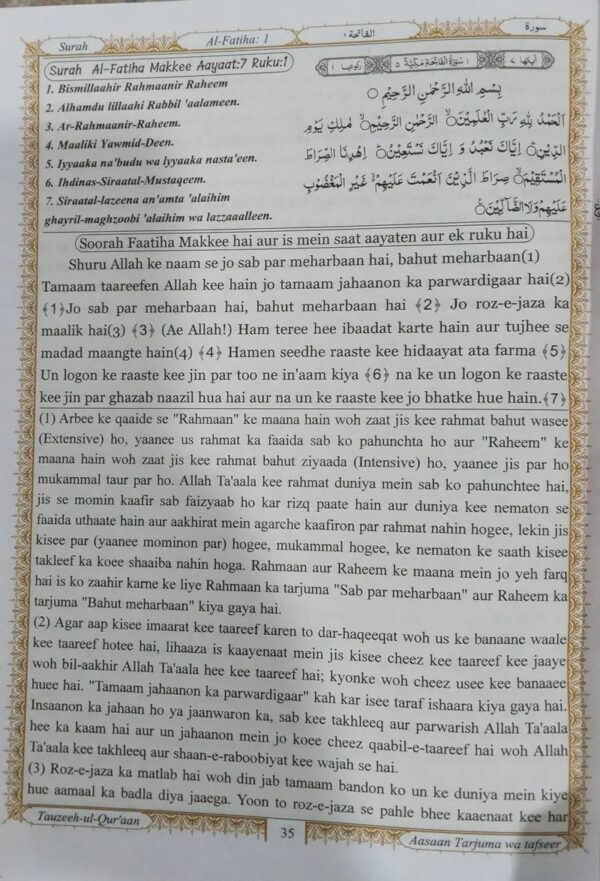 Surah
Al-Fatiha: 1
الفاتحة ١
سورة
Surah Al-Fatiha Makkee Aayaat:7 Ruku:1
اٰیٰتها ٧
١ سُوْرَةُ الْفَاتِحَةِ مَكِّيَّةٌ ٥
رکوعها ١
1. Bismillaahir Rahmaanir Raheem
2. Alhamdu lillaahi Rabbil 'aalameen.
3. Ar-Rahmaanir-Raheem.
4. Maaliki Yawmid-Deen.
5. Iyyaaka na'budu wa Iyyaaka nasta'een.
6. Ihdinas-Siraatal-Mustaqeem.
7. Siraatal-lazeena an'amta 'alaihim
ghayril-maghzoobi 'alaihim wa lazzaaalleen.
بِسْمِ اللّٰهِ الرَّحْمٰنِ الرَّحِيْمِ
اَلْحَمْدُ لِلّٰهِ رَبِّ الْعٰلَمِيْنَ الرَّحْمٰنِ الرَّحِيْمِ مٰلِكِ يَوْمِ
الدِّيْنِ اِيَّاكَ نَعْبُدُ وَ اِيَّاكَ نَسْتَعِيْنُ اِهْدِنَا الصِّرَاطَ
الْمُسْتَقِيْمَ صِرَاطَ الَّذِيْنَ اَنْعَمْتَ عَلَيْهِمْ غَيْرِ الْمَغْضُوْبِ
عَلَيْهِمْ وَلَا الضَّآلِّيْنَ
Soorah Faatiha Makkee hai aur is mein saat aayaten aur ek ruku hai
Shuru Allah ke naam se jo sab par meharbaan hai, bahut meharbaan(1)
Tamaam taareefen Allah kee hain jo tamaam jahaanon ka parwardigaar hai(2)
﴾1﴿Jo sab par meharbaan hai, bahut meharbaan hai ﴾2﴿ Jo roz-e-jaza ka
maalik hai(3) ﴾3﴿ (Ae Allah!) Ham teree hee ibaadat karte hain aur tujhee se
madad maangte hain(4) ﴾4﴿ Hamen seedhe raaste kee hidaayat ata farma ﴾5﴿
Un logon ke raaste kee jin par too ne in'aam kiya ﴾6﴿ na ke un logon ke raaste
kee jin par ghazab naazil hua hai aur na un ke raaste kee jo bhatke hue hain.﴾7﴿
(1) Arbee ke qaaide se "Rahmaan" ke maana hain woh zaat jis kee rahmat bahut wasee
(Extensive) ho, yaanee us rahmat ka faaida sab ko pahunchta ho aur "Raheem" ke
maana hain woh zaat jis kee rahmat bahut ziyaada (Intensive) ho, yaanee jis par ho
mukammal taur par ho. Allah Ta'aala kee rahmat duniya mein sab ko pahunchtee hai,
jis se momin kaafir sab faizyaab ho kar rizq paate hain aur duniya kee nematon se
faaida uthaate hain aur aakhirat mein agarche kaafiron par rahmat nahin hogee, lekin jis
kisee par (yaanee mominon par) hogee, mukammal hogee, ke nematon ke saath kisee
takleef ka koee shaaiba nahin hoga. Rahmaan aur Raheem ke maana mein jo yeh farq
hai is ko zaahir karne ke liye Rahmaan ka tarjuma "Sab par meharbaan" aur Raheem ka
tarjuma "Bahut meharbaan" kiya gaya hai.
(2) Agar aap kisee imaarat kee taareef karen to dar-haqeeqat woh us ke banaane waale
kee taareef hotee hai, lihaaza is kaayenaat mein jis kisee cheez kee taareef kee jaaye
woh bil-aakhir Allah Ta'aala hee kee taareef hai; kyonke woh cheez usee kee banaaee
huee hai. "Tamaam jahaanon ka parwardigaar" kah kar isee taraf ishaara kiya gaya hai.
Insaanon ka jahaan ho ya jaanwaron ka, sab kee takhleeq aur parwarish Allah Ta'aala
hee ka kaam hai aur un jahaanon mein jo koee cheez qaabil-e-taareef hai woh Allah
Ta'aala kee takhleeq aur shaan-e-raboobiyat kee wajah se hai.
(3) Roz-e-jaza ka matlab hai woh din jab tamaam bandon ko un ke duniya mein kiye
hue aamaal ka badla diya jaaega. Yoon to roz-e-jaza se pahle bhee kaaenaat kee har
Tauzeeh-ul-Qur'aan
35
Aasaan Tarjuma wa tafseer